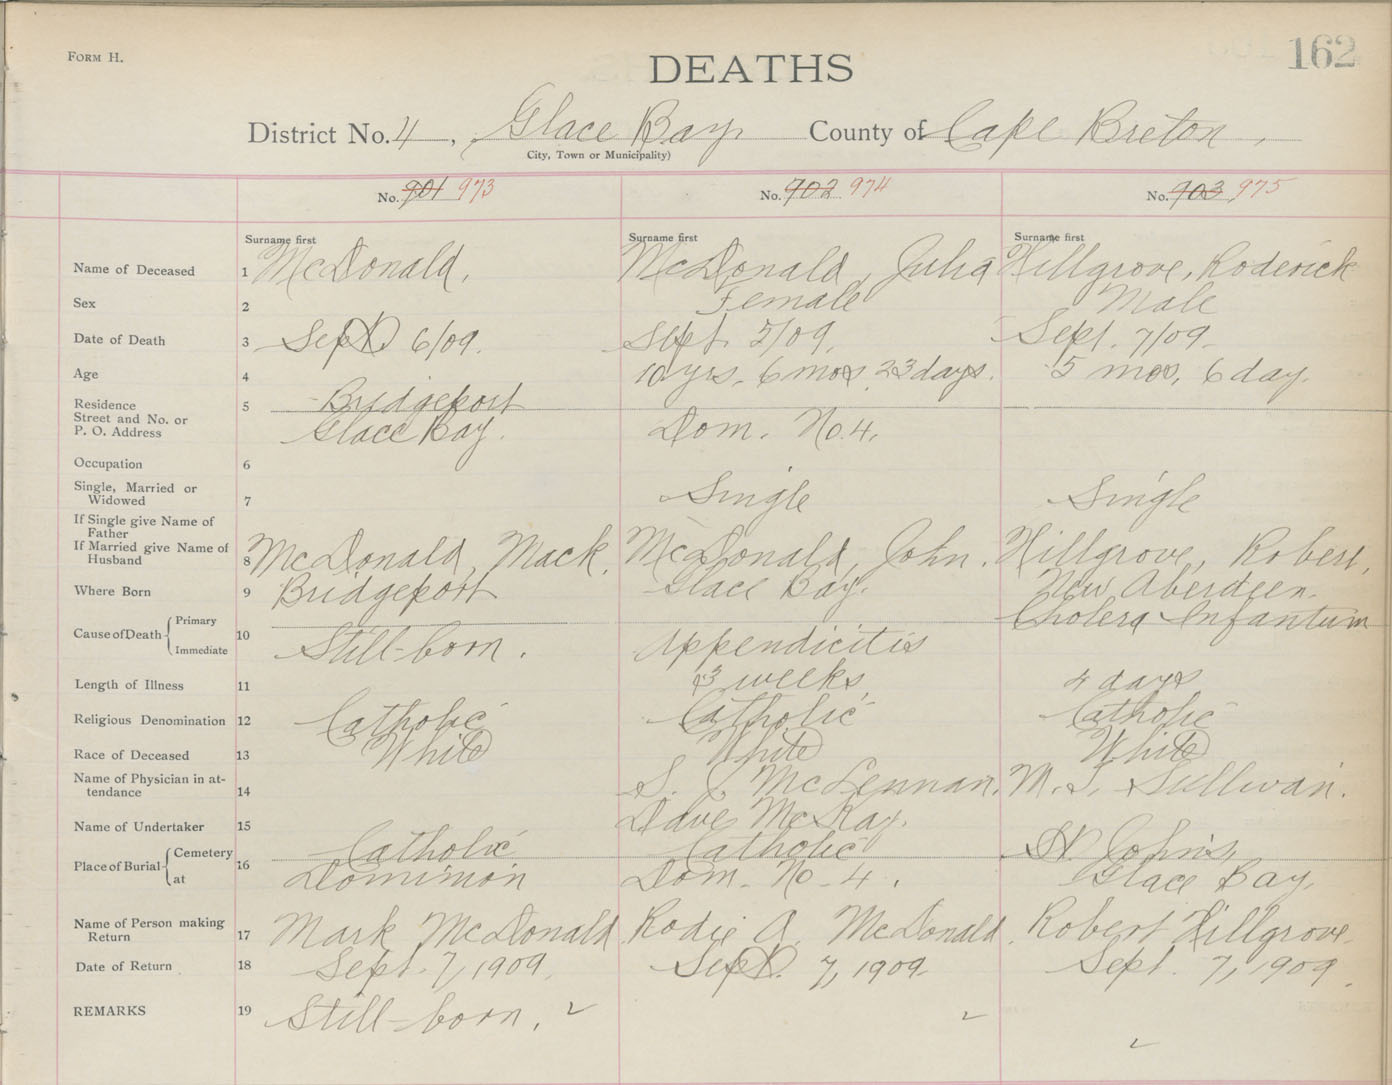 FORM H.
162
DEATHS
District No. 4, Glace Bay County of Cape Breton,
City, Town or Municipality)
No. 901 973 No. 902 974 No. 903 975
Surname first Surname first Surname first
Name of Deceased 1 McDonald, McDonald, Julia Hillgrove, Roderick
Sex 2 Female Male
Date of Death 3 Sept 6/09. Sept. /09. Sept. 7/09.
Age 4 10 yrs. 6 mos 23 days. 5 mos, 6 day.
Residence 5 Bridgeport
Street and No. or
P. O. Address Glace Bay. Dom. No. 4.
Occupation 6
Single, Married or
Widowed 7 Single Single
If Single give Name of
Father
If Married give Name of
Husband 8 McDonald, Mack. McDonald, John. Hillgrove, Robert,
Where Born 9 Bridgeport Glace Bay. New Aberdeen.
Cause of Death Primary Cholera Infantum
10 Immediate Still-born. Appendicitis
Length of Illness 11 3 weeks 4 days
Religious Denomination 12 Catholic Catholic Catholic
Race of Deceased 13 White White White
Name of Physician in at-
tendance 14 S. J. McLennan. M. T. Sullivan.
Name of Undertaker 15 Dave McKay.
Place of Burial Cemetery 16 Catholic Catholic St. John's,
at Dominion Dom. No - 4. Glace Bay.
Name of Person making
Return 17 Mark McDonald Rodie A. McDonald. Robert Hillgrove.
Date of Return 18 Sept. 7, 1909. Sept. 7, 1909. Sept. 7, 1909.
REMARKS 19 Still-born.